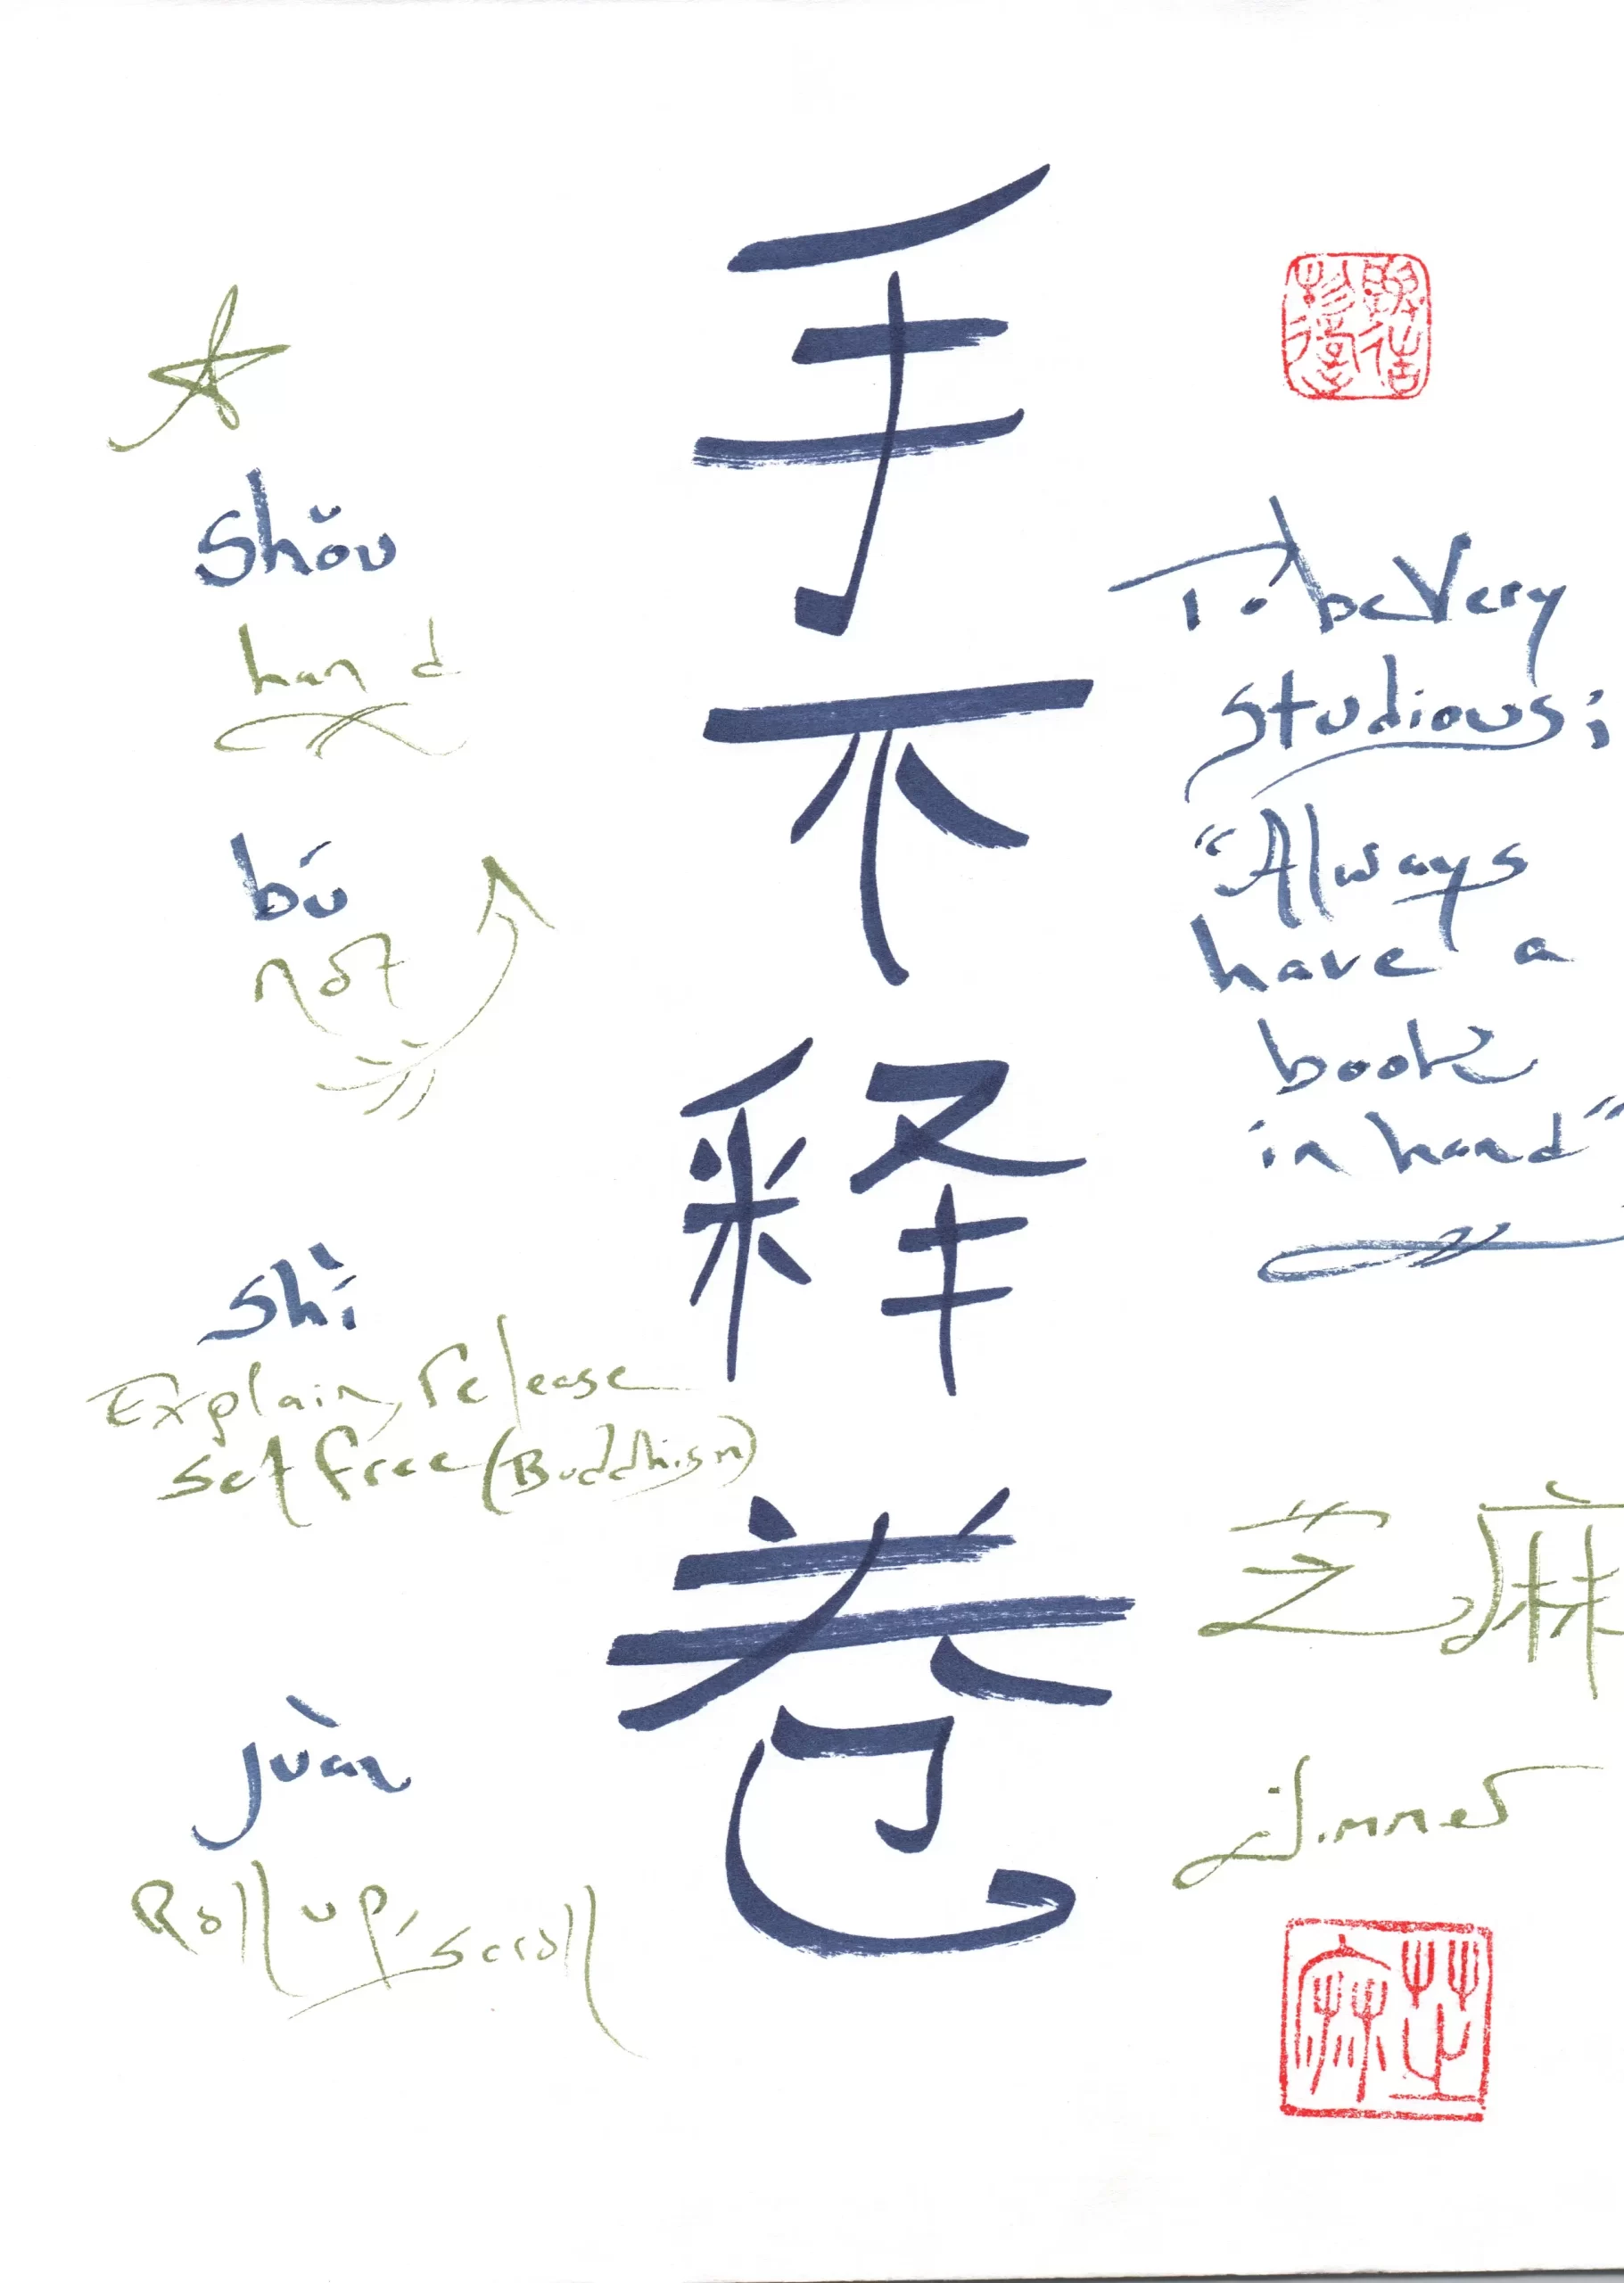 手不释卷
shǒu
hand
bú
not
shì
Explain, release
set free (Buddhism)
juàn
Roll up, scroll
To be Very
studious;
"Always
have a
book
in hand"
芝麻
芝麻